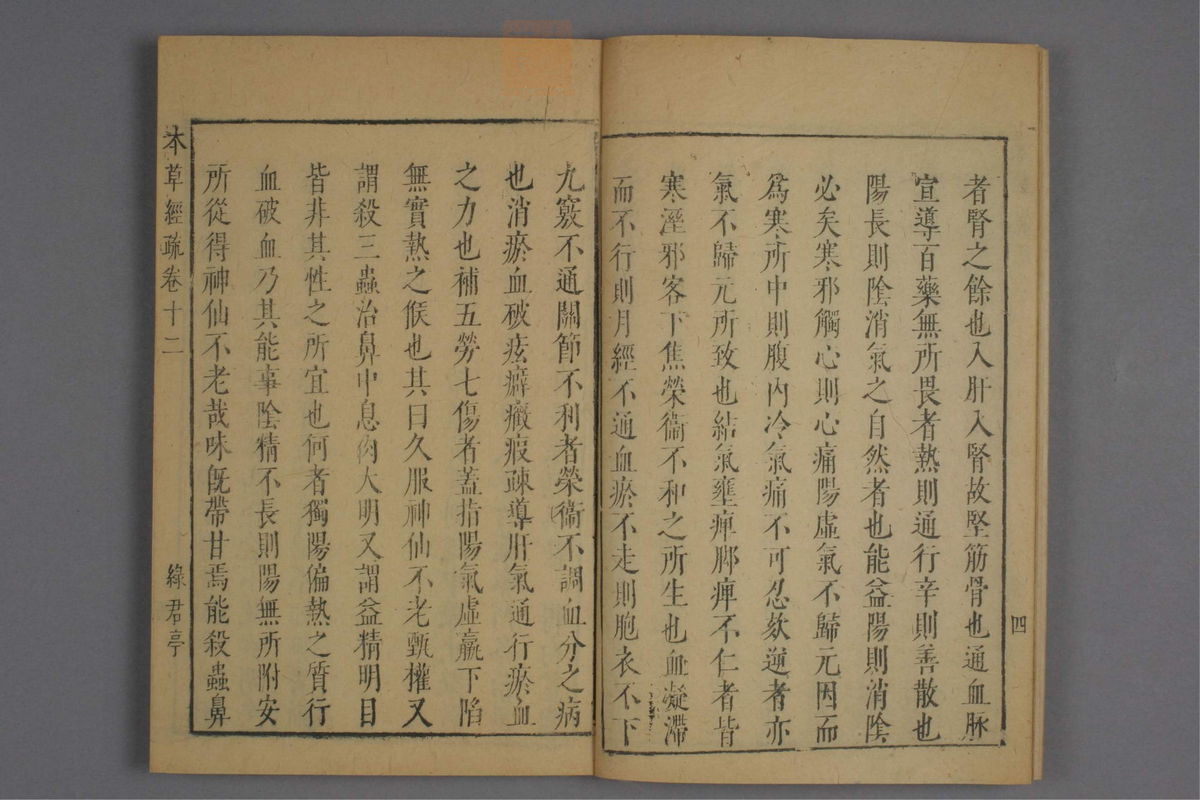 者腎之餘也入肝入腎故堅筋骨也通血脉
宣導百藥無所畏者熱則通行辛則善散也
陽長則陰消氣之自然者也能益陽則消陰
必矣寒邪觸心則心痛陽虛氣不歸元因而
爲寒所中則腹內冷氣痛不可忍欬逆者亦
氣不歸元所致也結氣壅痺脚痺不仁者皆
寒溼邪客下焦榮衞不和之所生也血凝滯
而不行則月經不通血瘀不走則胞衣不下
四
九竅不通關節不利者榮衞不調血分之病
也消瘀血破痃癖癥瘕疎導肝氣通行瘀血
之力也補五勞七傷者蓋指陽氣虛羸下陷
無實熱之候也其曰久服神仙不老甄權又
謂殺三蟲治鼻中息肉大明又謂益精明目
皆非其性之所宜也何者獨陽偏熱之質行
血破血乃其能事陰精不長則陽無所附安
所從得神仙不老哉味旣帶甘焉能殺蟲鼻
本草經疏卷十二
綠君亭